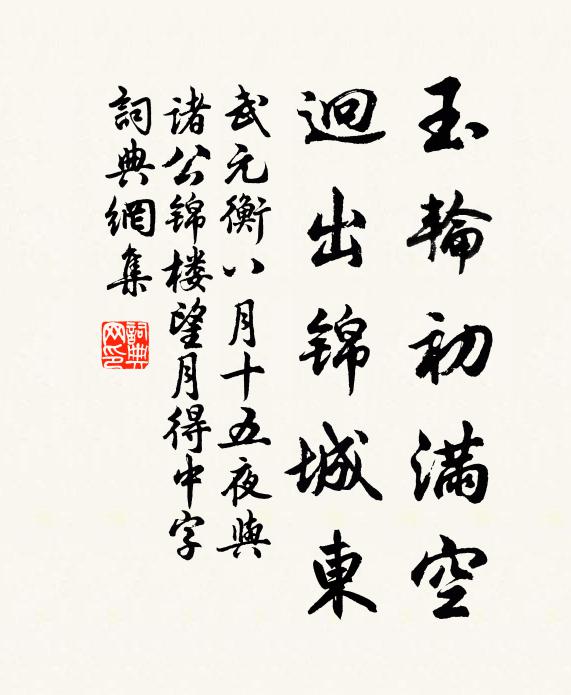 玉輪初滿空
迥出錦城東
武元衡八月十五夜與
諸公錦楼望月得中字
詞典網集
詞典網印